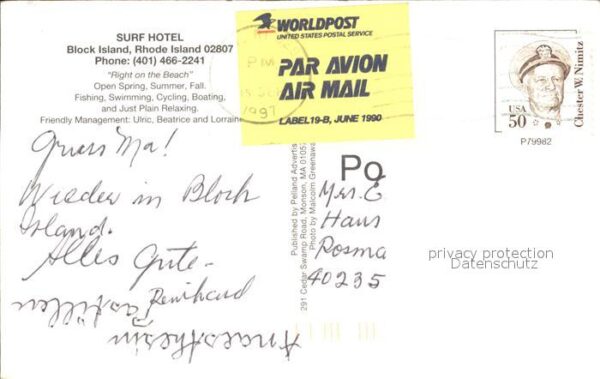 SURF HOTEL
Block Island, Rhode Island 02807
Phone: (401) 466-2241
"Right on the Beach"
Open Spring, Summer, Fall.
Fishing, Swimming, Cycling, Boating,
and Just Plain Relaxing.
Friendly Management: Ulric, Beatrice and Lorraine
WORLDPOST
UNITED STATES POSTAL SERVICE
PAR AVION
AIR MAIL
LABEL 19-B, JUNE 1990
PM
1997
USA
50
Chester W. Nimitz
P79982
Wieder in Block
Island.
Alles Gute-
Reinhard
Anaesthesin
Pastillen
Po
Mrs. E
Haus
Posma
40235
291 Cedar Swamp Road, Monson, MA 0105
Photo by Malcolm Greenaway
privacy protection
Datenschutz